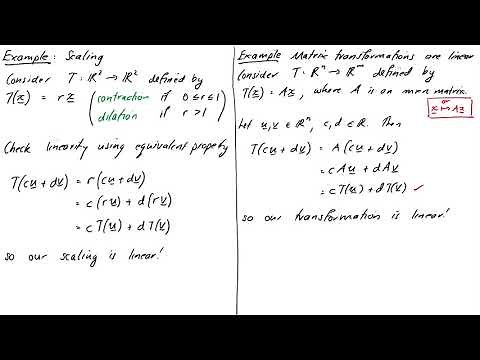 Example: Scaling
Consider T: ℝ² → ℝ² defined by
T(x) = rx (contraction if 0≤r≤1
dilation if r>1)
Check linearity using equivalent property
T(cu+dv) = r(cu+dv)
= c(ru) + d(rv)
= cT(u) + dT(v)
so our scaling is linear!
Example Matrix transformations are linear
Consider T: ℝⁿ → ℝᵐ defined by
T(x) = Ax, where A is an m×n matrix.
or
x ↦ Ax
Let u, v ∈ ℝⁿ, c, d ∈ ℝ. Then
T(cu+dv) = A(cu+dv)
= cAu + dAv
= cT(u) + dT(v) ✓
so our transformation is linear!